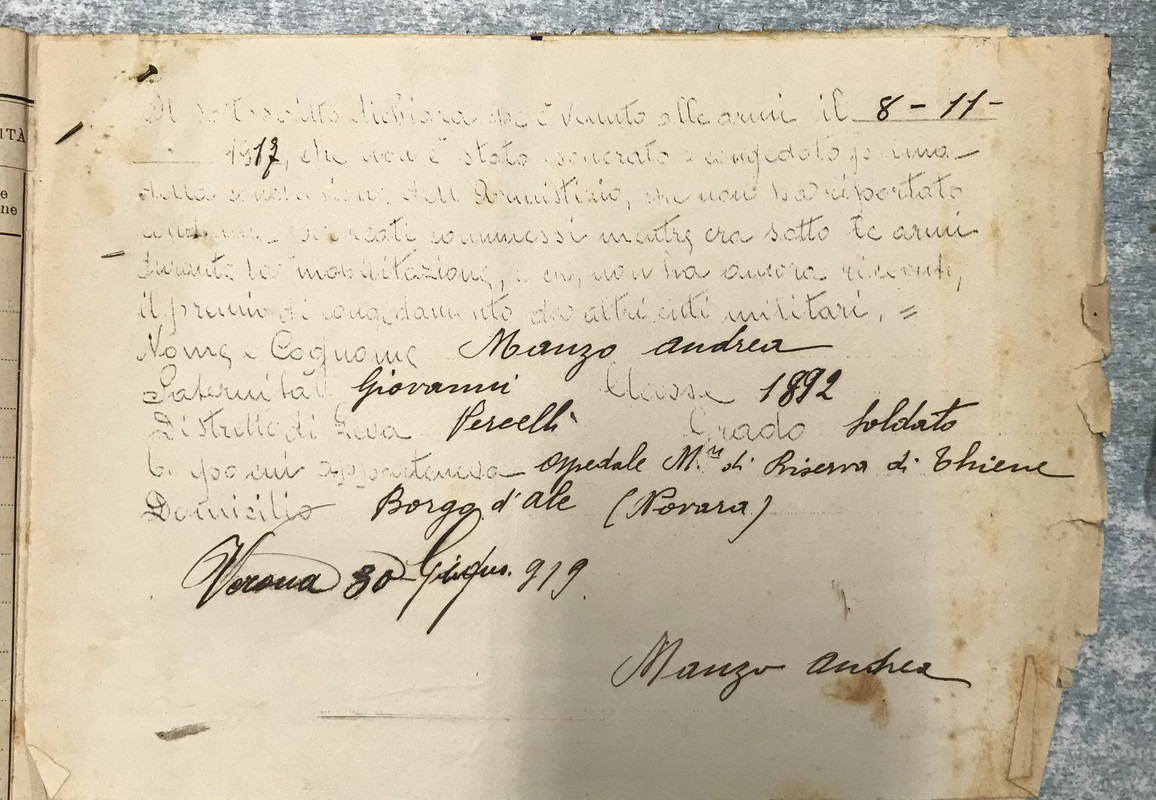 Il sottoscritto dichiara che è venuto alle armi il 8 - 11 -
1917, che non è stato esonerato o congedato prima
della conclusione dell'Armistizio, che non ha riportato
condanne per reati commessi mentre era sotto le armi
durante la mobilitazione, e che non ha ancora ricevuto
il premio di congedamento da altri enti militari. =
Nome e Cognome Manzo Andrea
Paternità Giovanni Classe 1892
Distretto di Leva Vercelli Grado Soldato
C. po cui apparteneva Ospedale M.re di Riserva di Thiene
Domicilio Borgo d'Ale (Novara)
Verona 30 Giugno. 919.
Manzo Andrea
ITÀ
e
ne